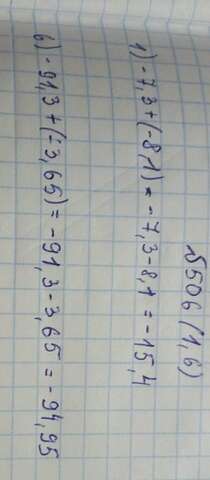 №506 (1,6)
1) -7,3+(-8,1) = -7,3-8,1 = -15,4
6) -91,3+(-3,65)= -91,3-3,65 = -94,95